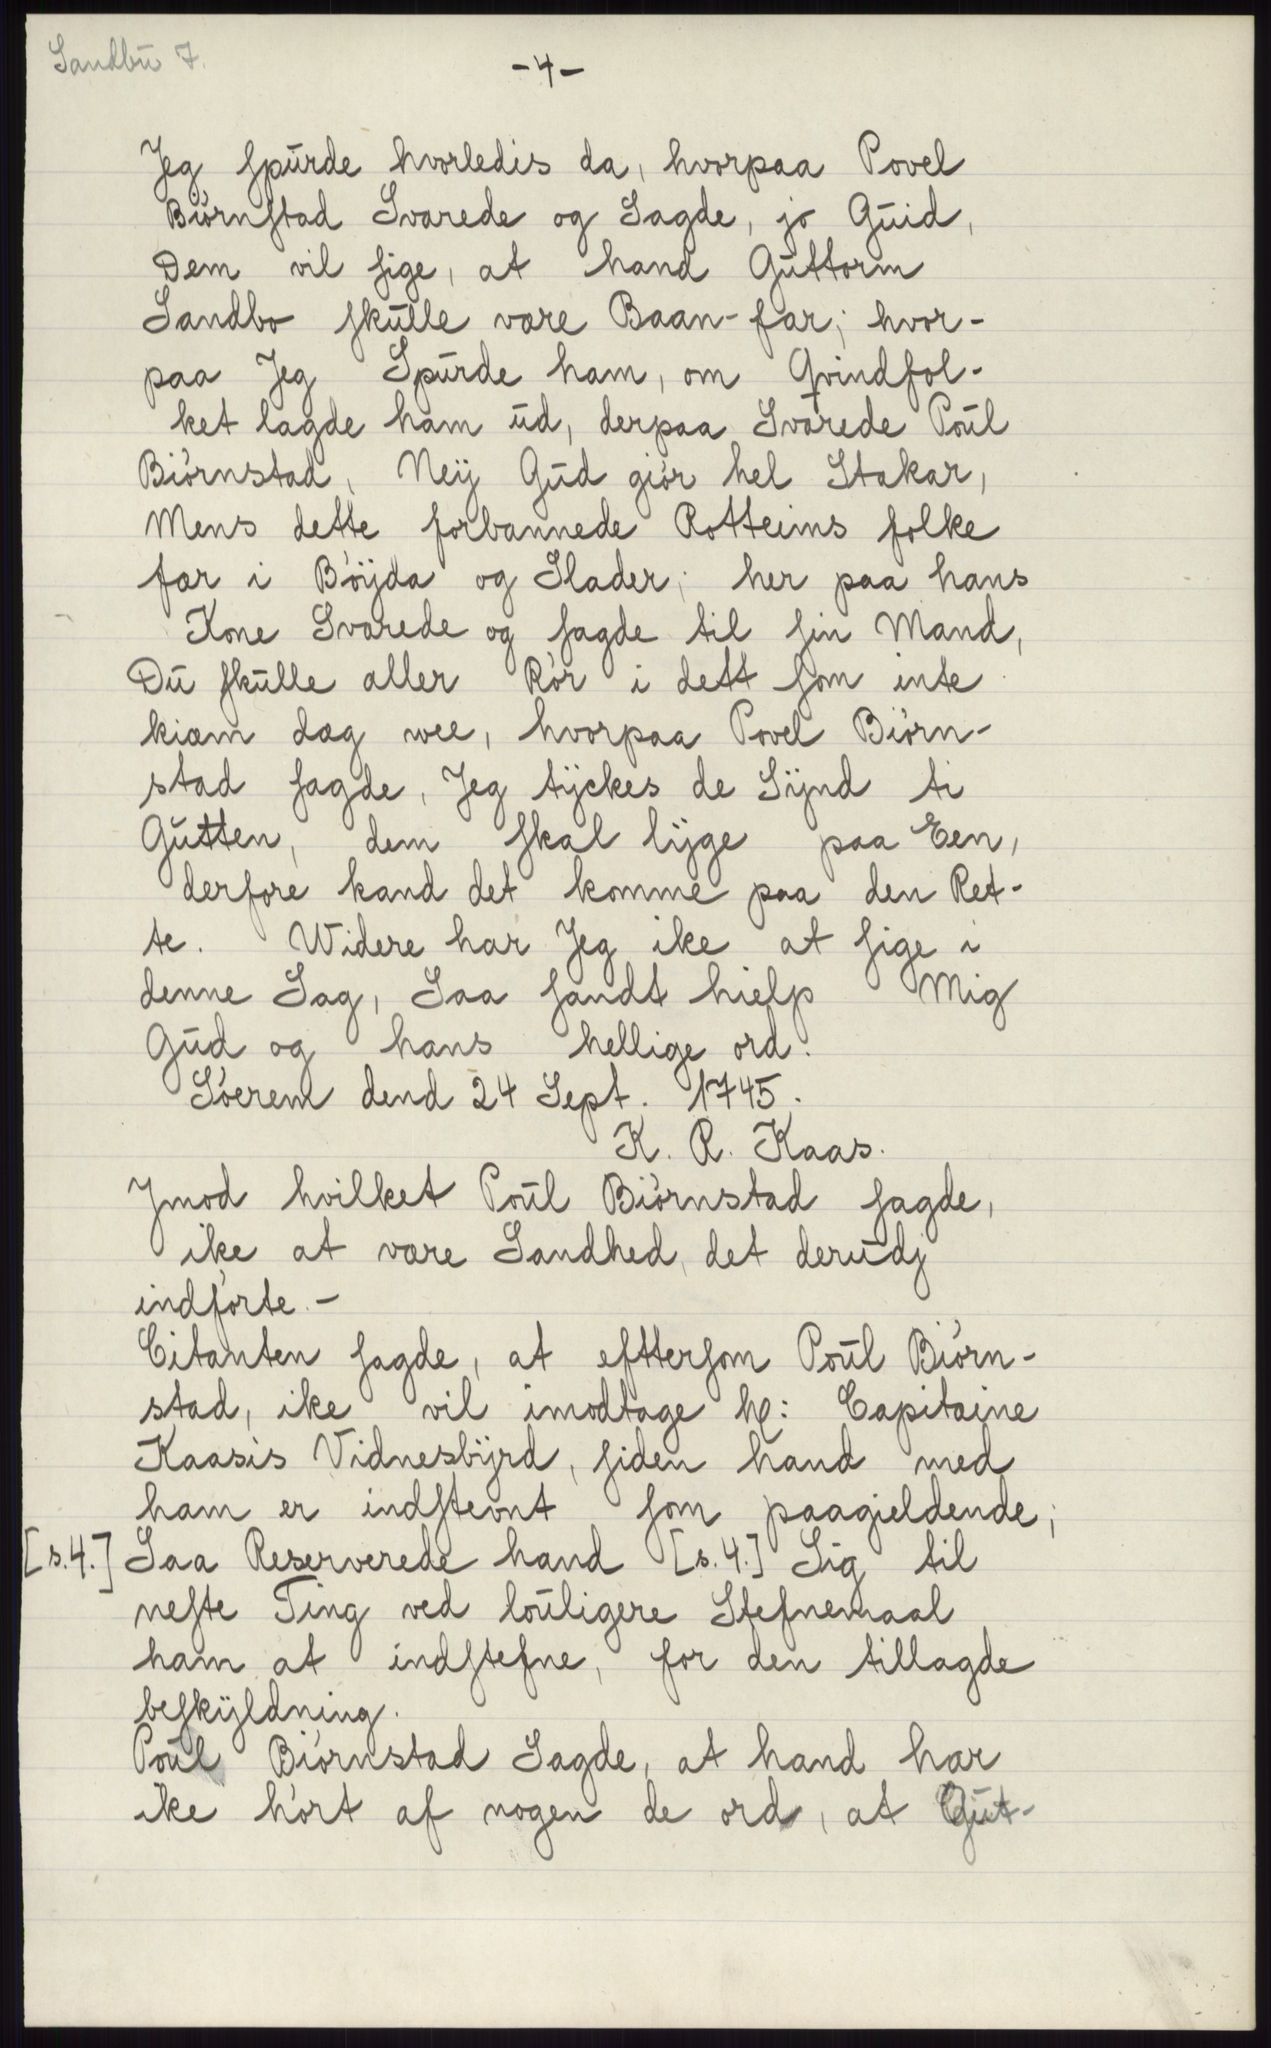 Sandbu 7.
-4-
Jeg spurde hvorledis da, hvorpaa Povel
Biørnstad Svarede og Sagde, jo Guid,
Dem vil sige, at hand Guttorm
Sandbo skulle være Baan-far; hvor-
paa Jeg Spurde ham, om Qvindfol-
ket lagde ham ud, derpaa Svarede Poul
Biørnstad, Neÿ Gud giør hel Stakar,
Mens dette forbannede Rotteims folke
far i Bøÿda og Slader; her paa hans
Kone Svarede og sagde til sin Mand,
Du skulle aller Rør i dett som inte
kiæm dæg wee, hvorpaa Povel Biørn-
stad sagde, Jeg tÿckes de Sÿnd ti
Gutten, dem skal lÿge paa Een,
derfore kand det komme paa den Ret-
te. Widere har Jeg ike at sige i
denne Sag, Saa sandt hielp Mig
Gud og hans hellige ord.
Søerem dend 24 Sept. 1745.
K. R. Kaas.
Jmod hvilket Poul Biørnstad sagde,
ike at være Sandhed, det derudj
indførte.-
Citanten sagde, at efttersom Poul Biørn-
stad, ike vil imodtage Hr: Capitaine
Kaasis Vidnesbÿrd, siden hand med
ham er indstevnt som paagieldende;
[s.4.] Saa Reserverede hand [s.4.] Sig til
neste Ting ved louligere Stefnemaal
ham at indstefne, for den tillagde
beskÿldning.
Poul Biørnstad Sagde, at hand har
ike hørt af nogen de ord, at Gut-